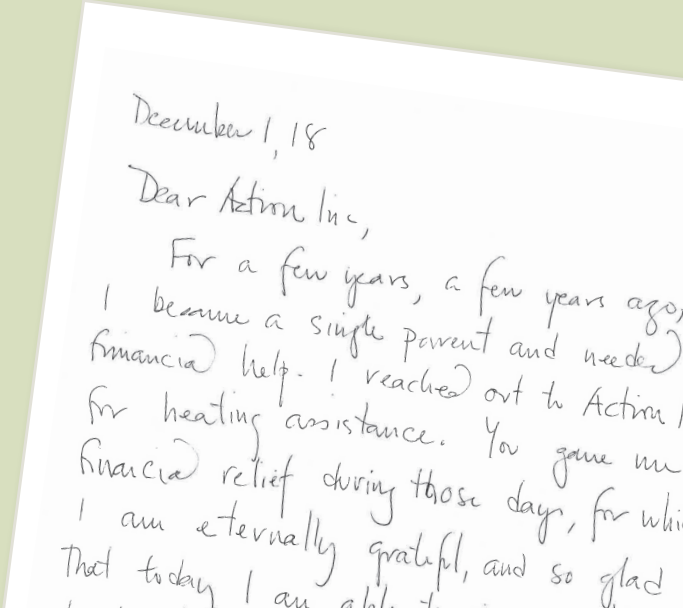 December 1, 18
Dear Action Inc,
For a few years, a few years ago,
I became a single parent and needed
financial help. I reached out to Action
for heating assistance. You gave me
financial relief during those days, for
I am eternally grateful, and so glad
That today I am